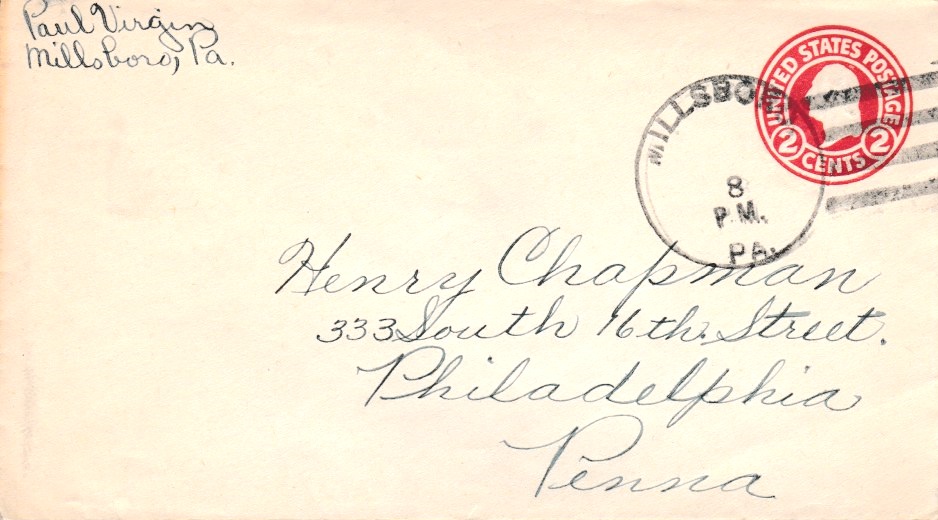 Paul Virgin
Millsboro, Pa.
UNITED STATES POSTAGE
2 CENTS 2
MILLSBO
8
P.M.
PA.
Henry Chapman
333 South 16th. Street.
Philadelphia
Penna